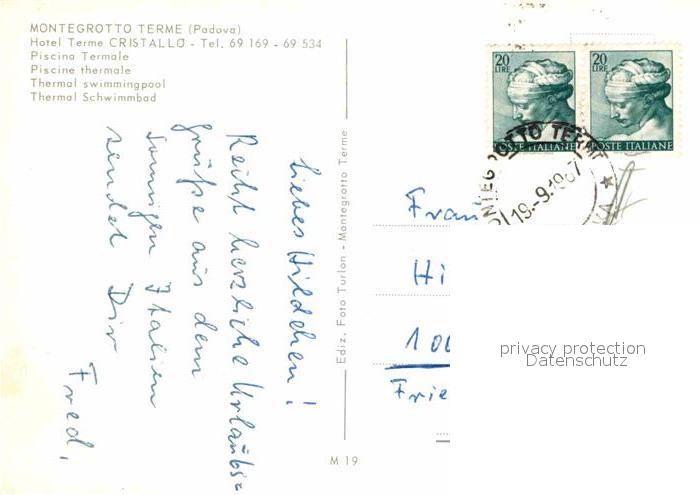 MONTEGROTTO TERME (Padova)
Hotel Terme CRISTALLO - Tel. 69 169 - 69 534
Piscina Termale
Piscine thermale
Thermal swimmingpool
Thermal Schwimmbad
Liebes Hildchen!
Recht herzliche Urlaubs=
grüße aus dem
sonnigen Italien
sendet Dir
Fred.
Ediz. Foto Turlon - Montegrotto Terme
M 19
20 LIRE
POSTE ITALIANE
20 LIRE
POSTE ITALIANE
MONTEGROTTO TERME
19.-9.1967
Frau
Hi
100
Frie
privacy protection
Datenschutz